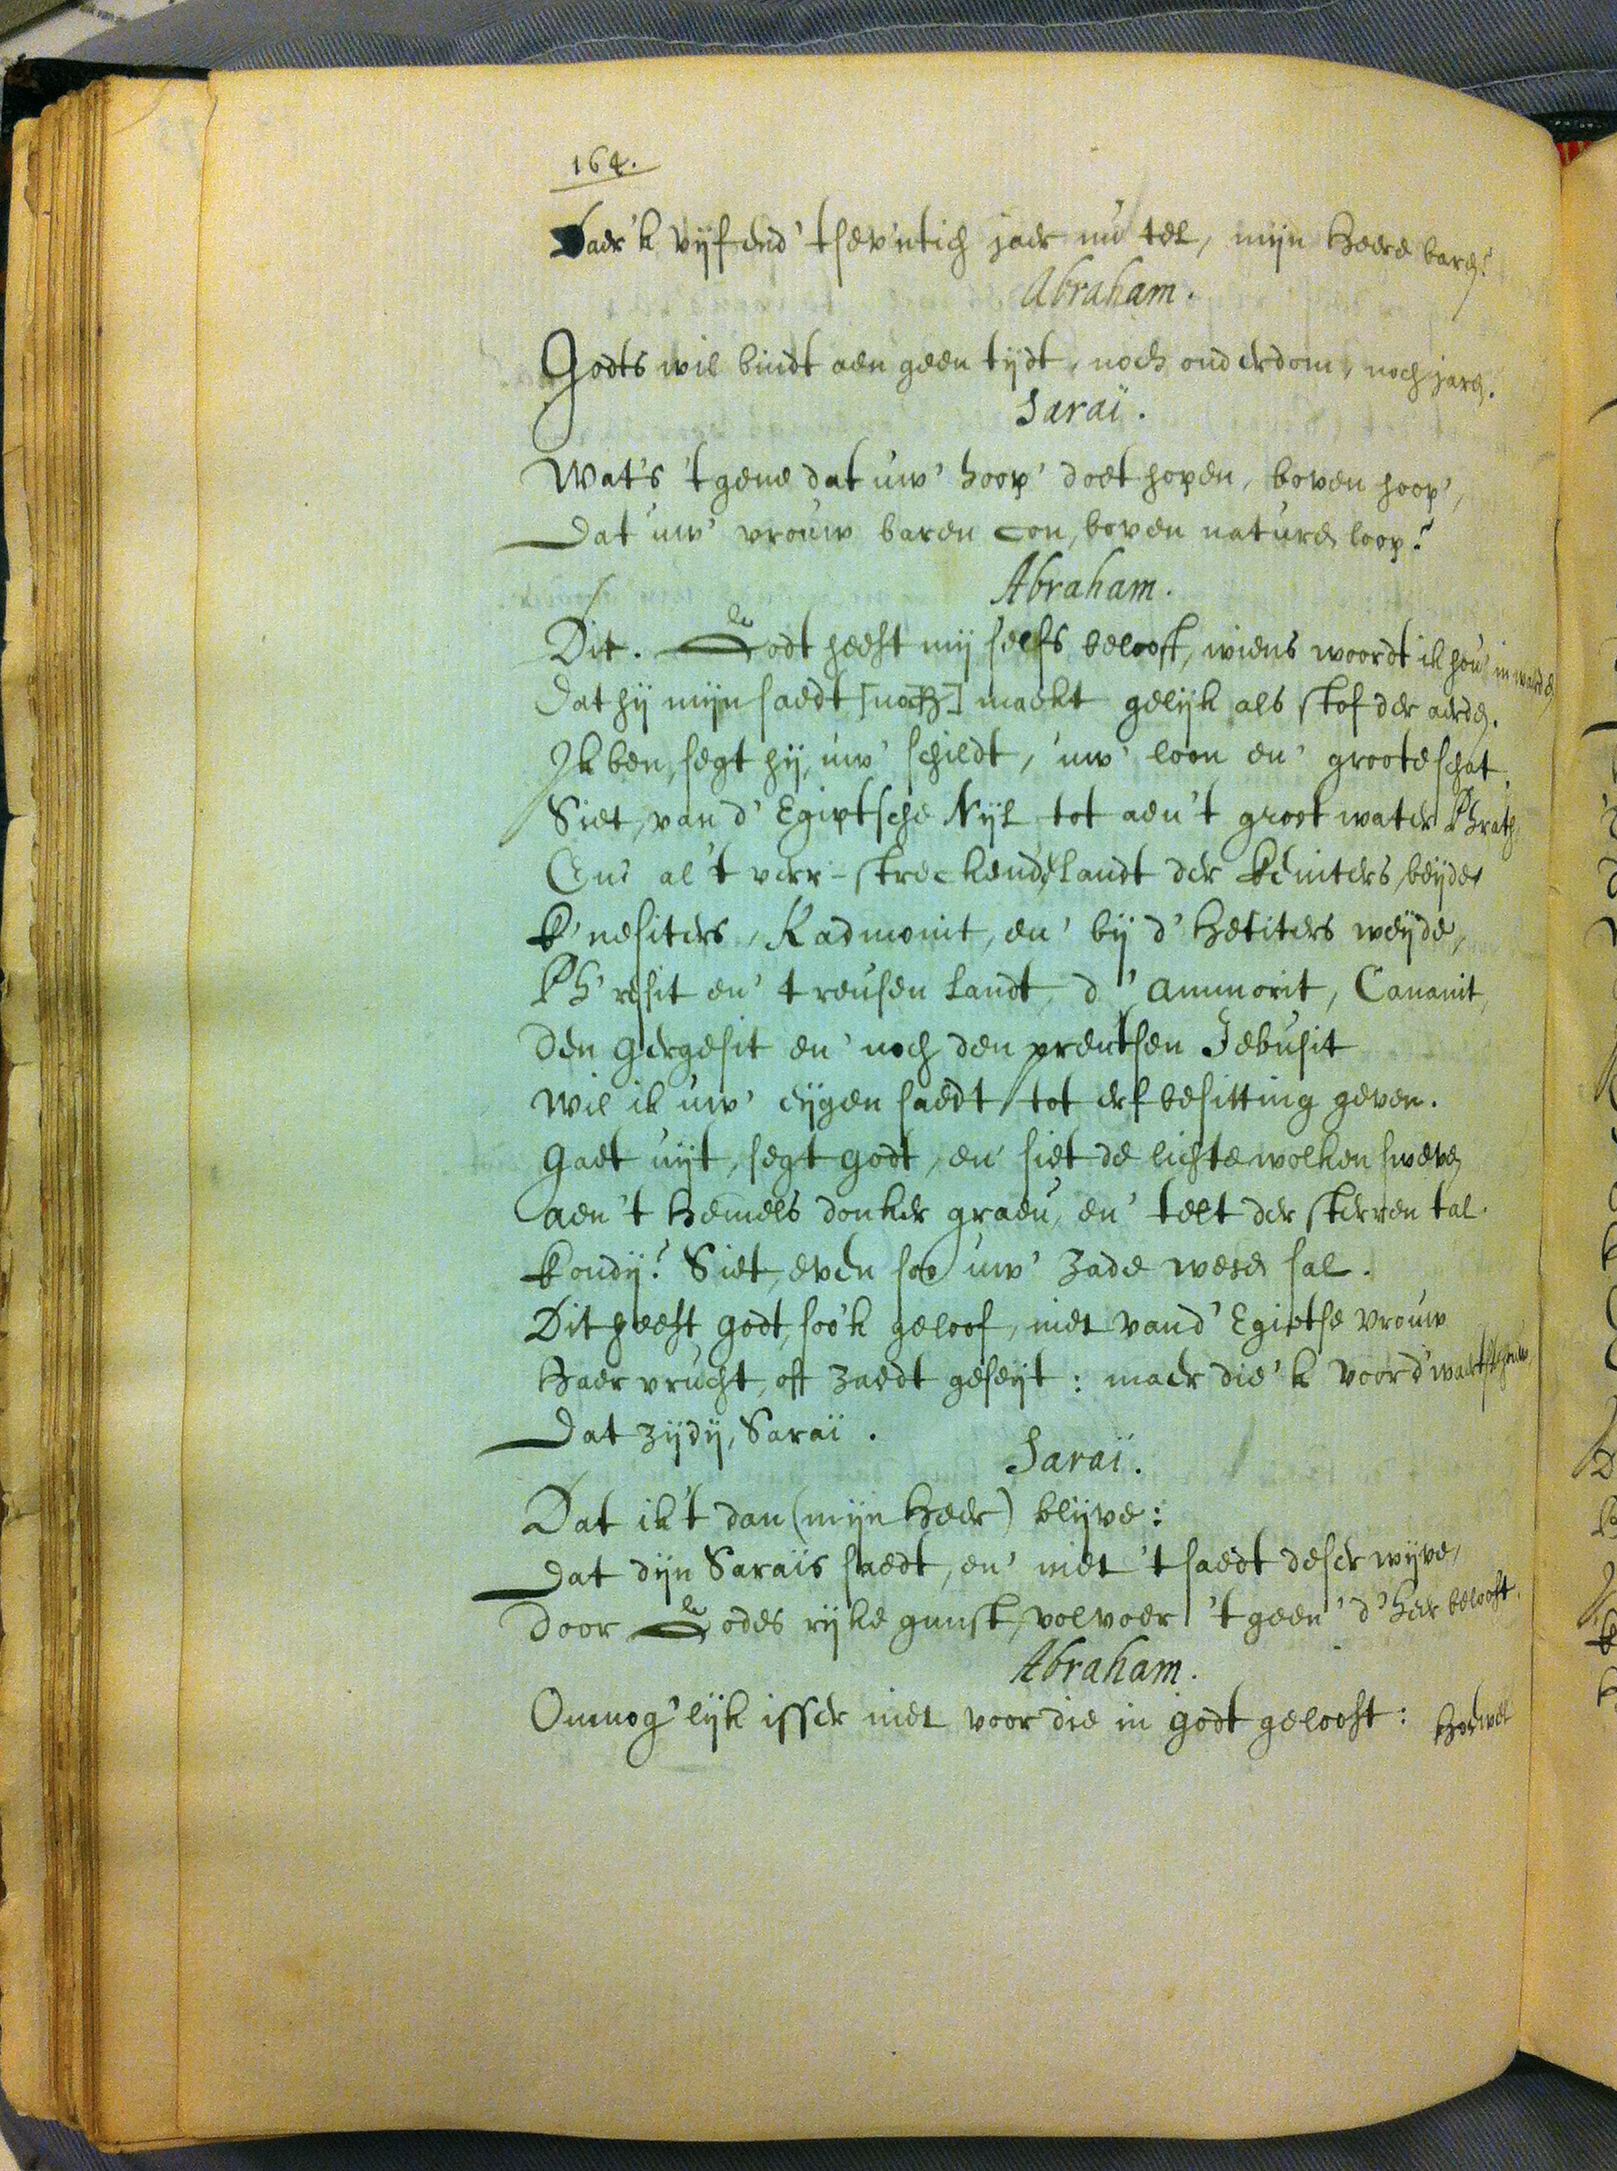 164.
Daer 'k vijfend' tsev'ntich jaer nu tel, mijn Heere baren?
Abraham.
Godts wil bindt aen geen tijdt, noch ouderdom, noch jaren.
Saraï.
Wat's 't gene dat uw' hoop' doet hopen, boven hoop',
Dat uw' vrouw baren con, boven naturen loop?
Abraham.
Dit. Godt heeft mij selfs belooft, wiens woordt ik hou' in waerden
Dat hij mijn saedt [noch] maekt gelijk als stof der aerden.
Ik ben, segt hij, uw' schildt, uw' loon en' groote schat.
Siet, van d' Egiptsche Nijl tot aen 't groot water Phrath,
En' al 't verr-streckende landt der Keniters, beijde
K'nesiters, Kadmonit, en' bij d' Hetiters weijde,
Ph'resit en' treusen landt, d' Ammorit, Cananit,
Den Gergesit en' noch den prentsen Jebusit
Wil ik uw' eijgen saedt, tot erfbesitting geven.
Gaet uijt, segt Godt, en' siet de lichte wolken sweven
aen 't Hemels donker graeu, en' telt der sterren tal.
Kondij? Siet, even soo uw' zade wesen sal.
Dit heeft Godt, soo'k geloof, niet van d' Egiptse vrouw
Haer vrucht, oft zaedt geseijt: maer die 'k voor d'
Dat zijdij, Saraï.
Saraï.
Dat ik 't dan (mijn Heer) blijve:
Dat dijn Saraïs saedt, en' niet 't saedt deser wijve,
Door Godes rijke gunst, volvoer 't geen' d' Heer belooft.
Abraham.
Onmog'lijk isser niet voor die in Godt gelooft: Hoewel